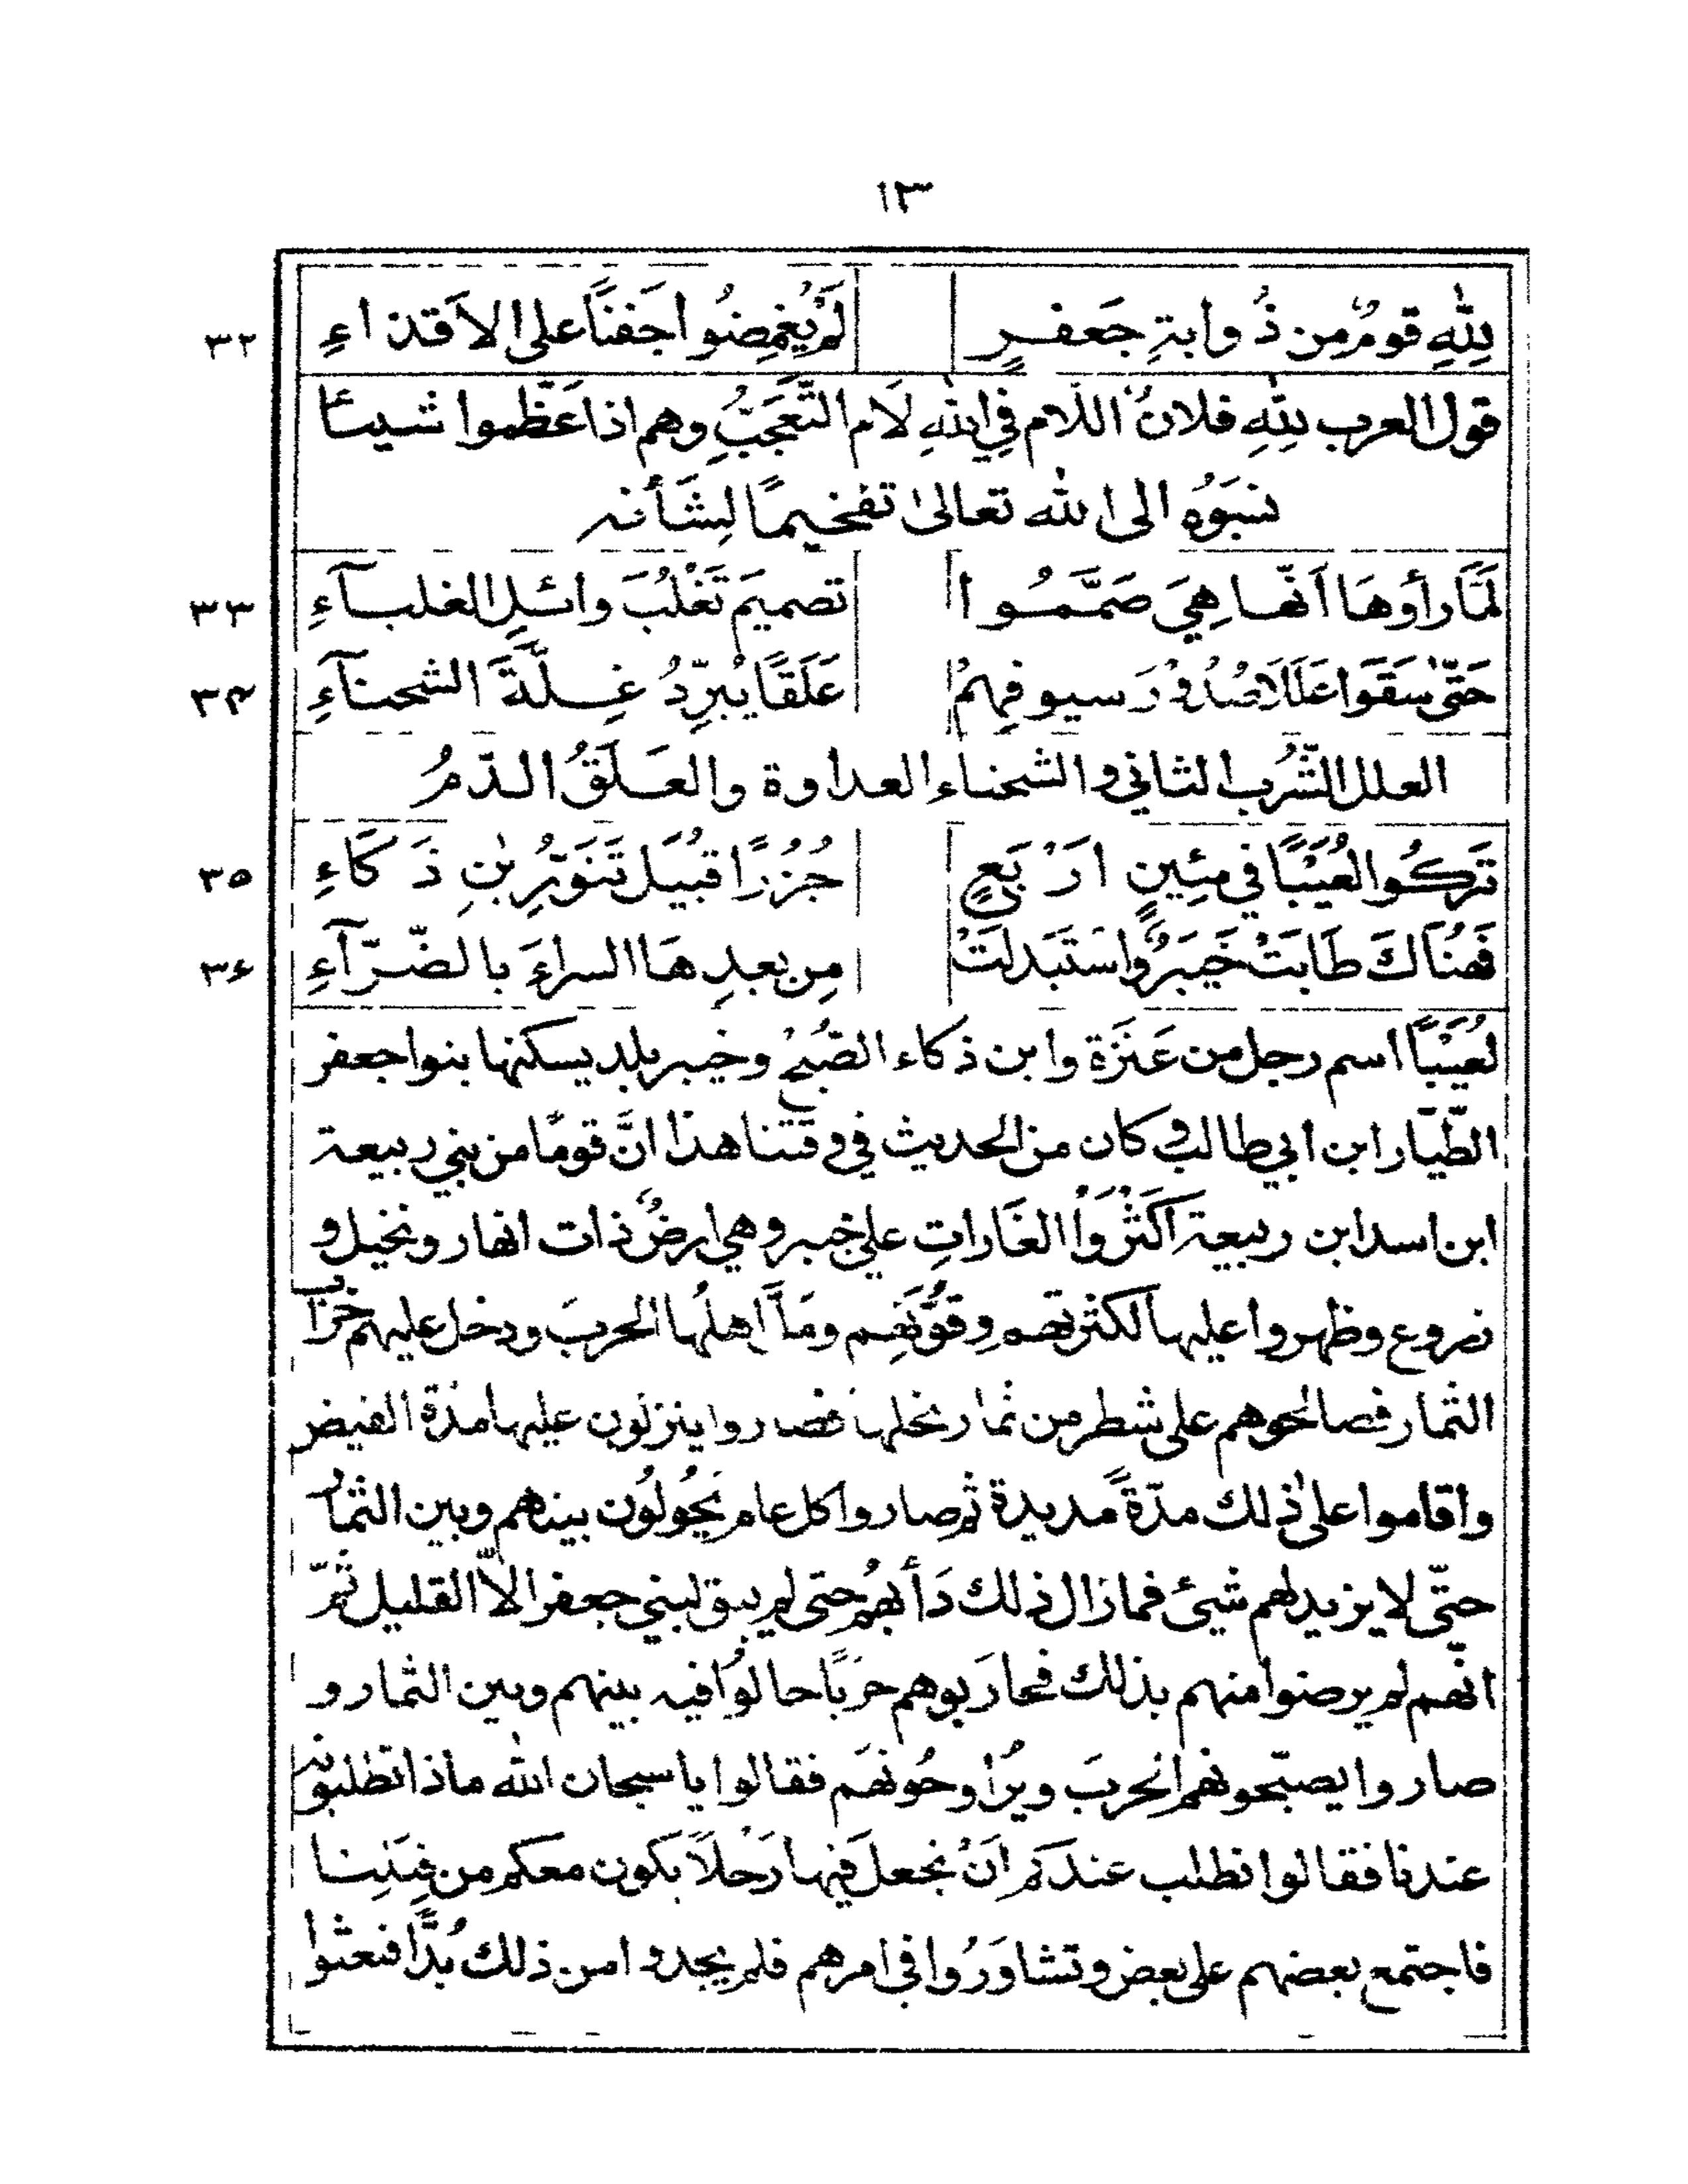 ١٣
لِلّٰهِ قومٌ من ذُوابةِ جَعفــرٍ لَمْ يُغمِضُوا جَفنًا على الاَقذاءِ ٣٢
قول العرب لِلّٰهِ فلانٌ اللام في لِلّٰهِ لَام التَّعَجّبِ وهم اذا عَظّموا شيئا
نسَبَوُه الى الله تعالىٰ تفخيمًا لِشَأنه
لَمَّا رأوهَا اَنّها هِيَ صَمَّمُوا تصميمَ تَغْلُبَ وائلِ الغلبآءِ ٣٣
حَتّىٰ سَقَوا عَلَلَا صُدُوْرَ سيوفِهِمُ عَلَقًا يُبرِّدُ غِلَّةَ الشحنآءِ ٣٤
العلل الشُّرب الثاني والشحناء العداوة والعَلَقُ الدّمُ
تَركُوا لعُيَبًا في مئِينٍ اَرْبَعٍ جُزُرًا قبيَل تَنَوّرِ بْنِ ذَكَاءِ ٣٥
فَهُنَاكَ طَابَتْ خَيبَرٌ واسْتَبَدلَتْ مِن بعدِهَا السراءَ بالضّرّآءِ ٣٦
لعُيَبًا اسم رجل من عَنَزَة وابن ذكاء الصّبُح وخيبر بلد يسكنها بنوا جعفر
الطّيّار ابن ابي طالب وكان من الحديث في وقتنا هذا انَّ قومًا من بني ربيعة
ابن اسد ابن ربيعة اَكَثْرَوا الغَاراتِ على خيبر وهي ارضٌ ذات انهار ونخيل و
زروع وظهروا عليها لكثرتهم وقوّتهم ومَلَّ اهلُها الحربَ ودخل عليهم خراب
الثمار فصالحوهم على شطر من ثمار نخلها فصاروا ينزلون عليها مدّة القيض
واقاموا على ذلك مدّةً مديدة ثم صاروا كل عام يَحُولُون بينهم وبين الثمار
حتّى لا يزيد لهم شيئ فما زال ذلك دَأبهُم حتى لم يبق لبني جعفر الاّ القليل ثمّ
انّهم لم يرضوا منهم بذلك فحارَبوهم حرْبًا حالُوا فيه بينهم وبين الثمار و
صاروا يصبّحونهم الحربَ ويُراوحُونهَم فقالوا يا سبحان الله ماذا تطلبون
عندنا فقالوا نطلب عندكم اَنْ نجعل فيها رَجْلاً يكون معكم من
فاجتمع بعضهم على بعض وتشاوَرُوا في امرهم فلم يجدوا من ذلك بُدًّا فبعثوا